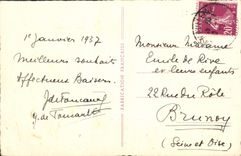 1er Janvier 1937
Meilleurs souhaits
Affectueux Baisers
FABRICATION FRANÇAISE
Monsieur Madame
Emile de Rive
et leurs enfants
22 Rue du Rôle
Brunoy
(Seine et Oise)